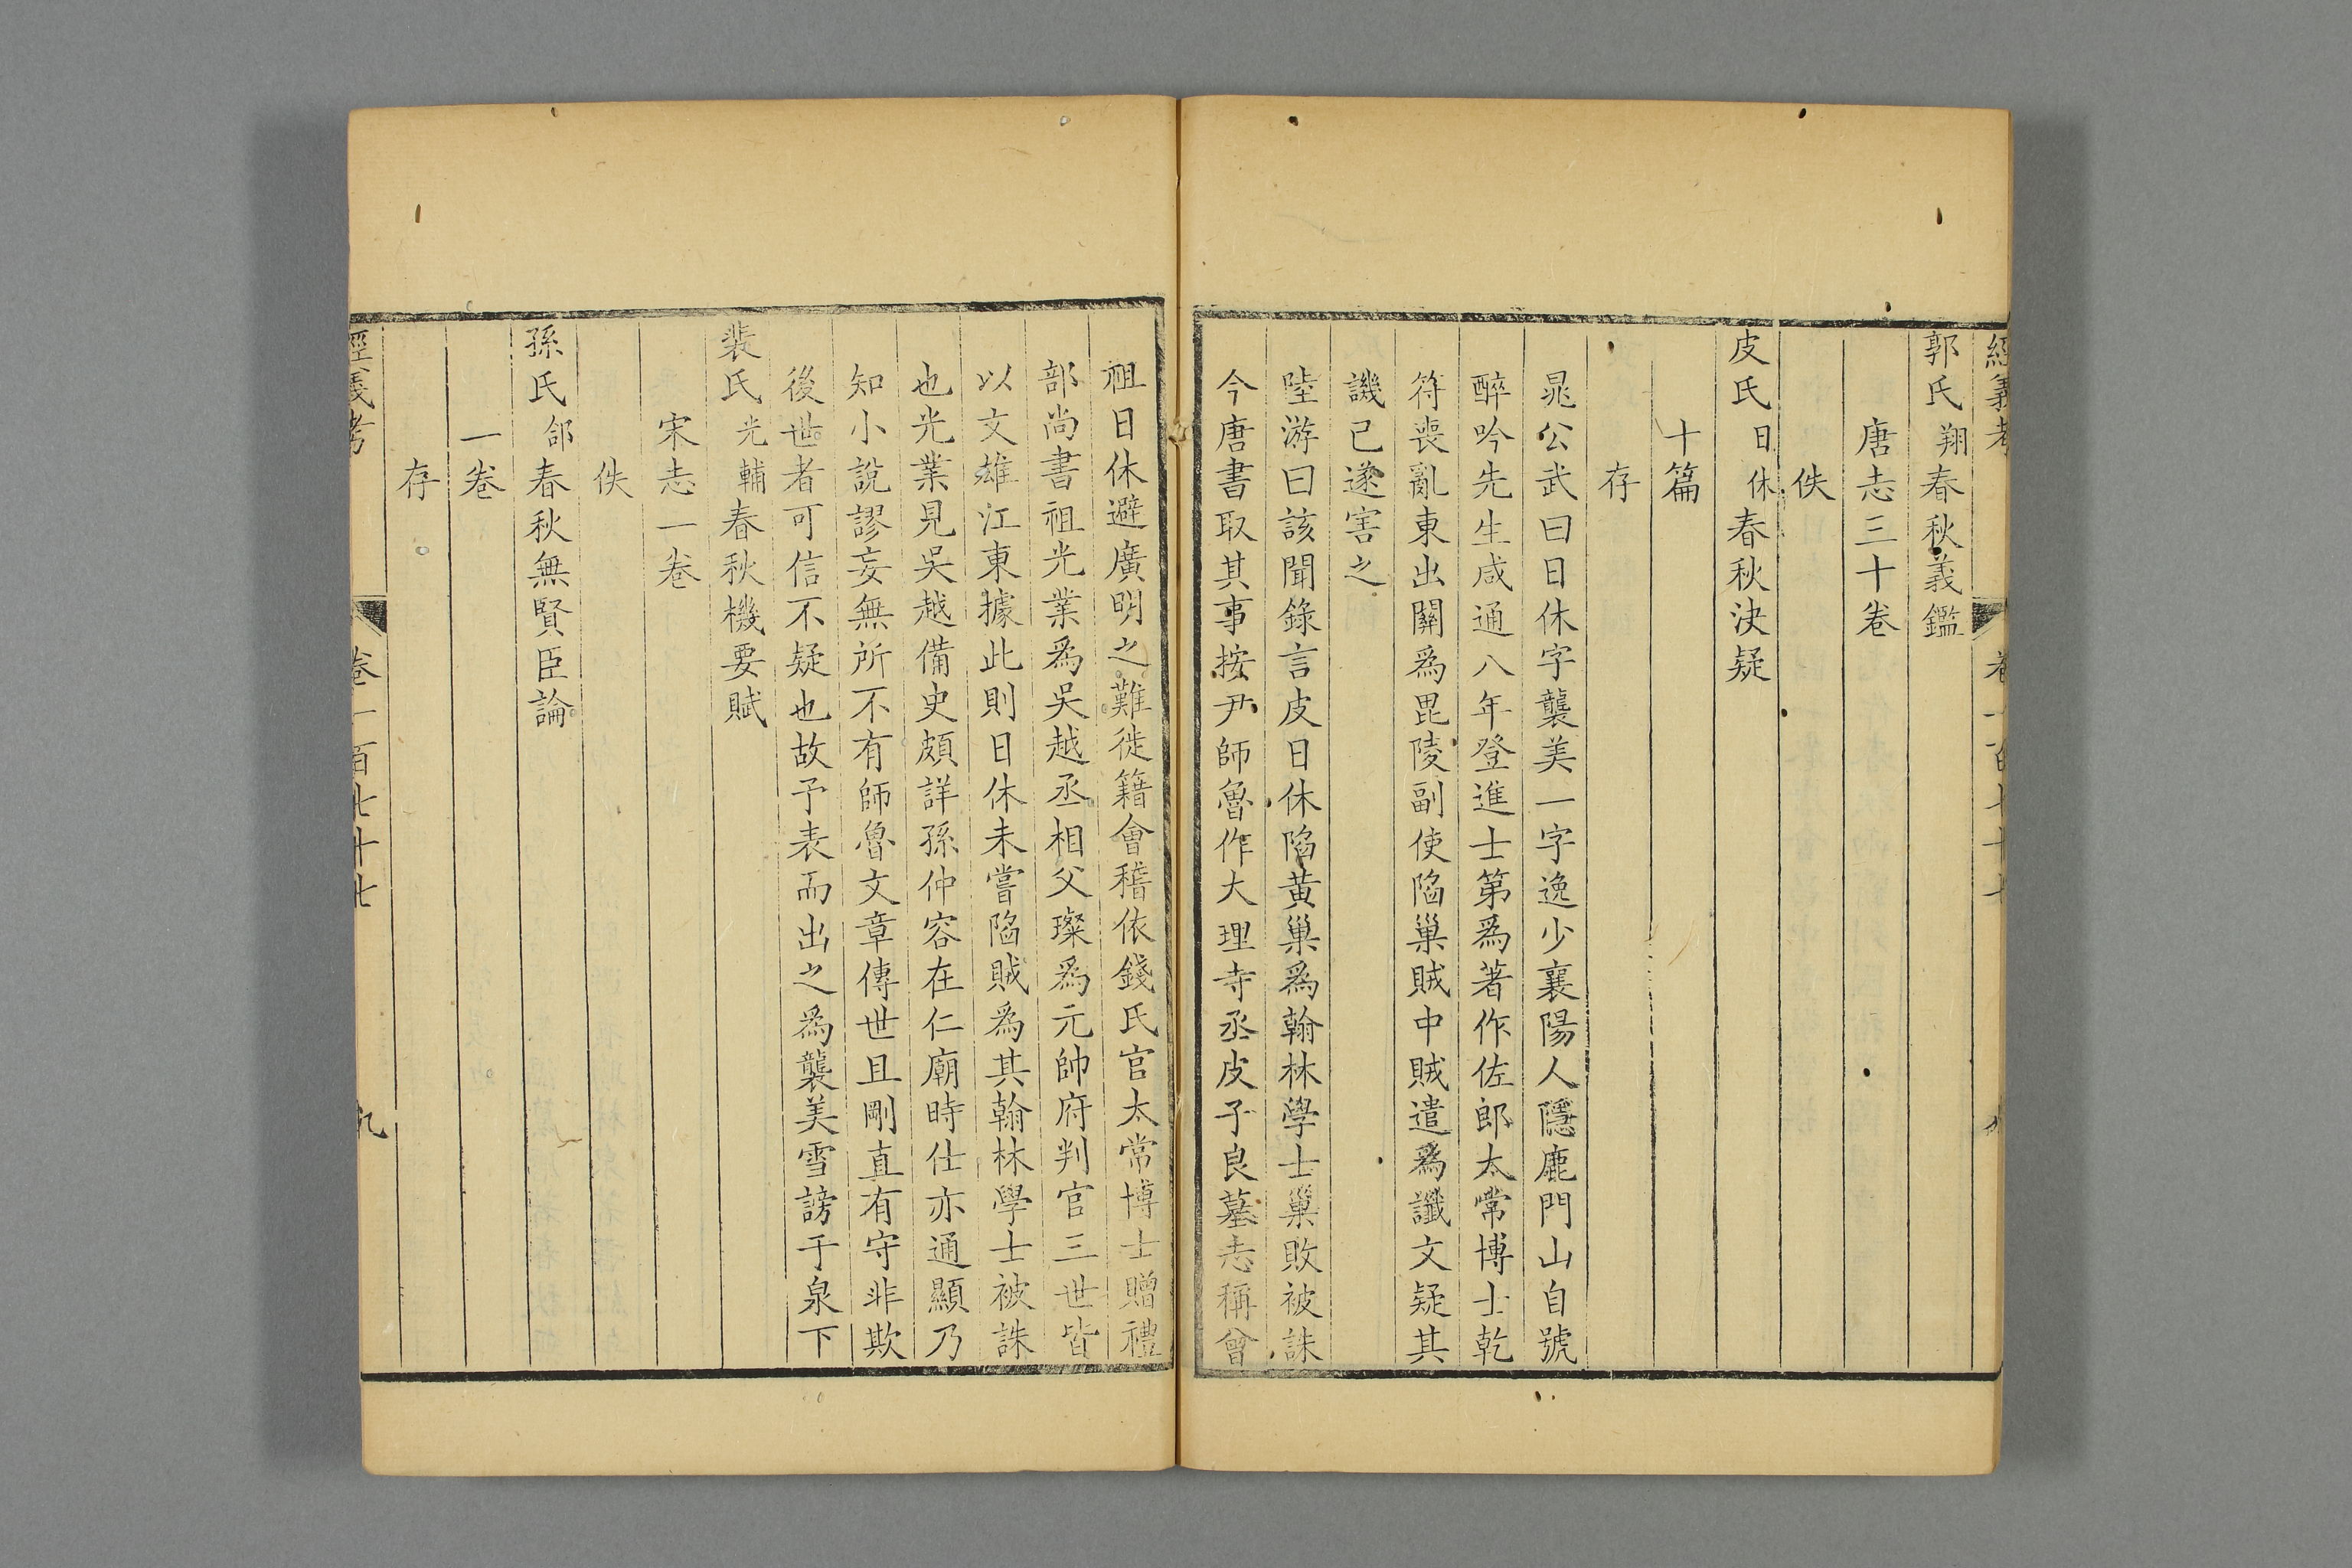 經義考 卷一百七十七 九
郭氏翔春秋義鑑
唐志三十卷
佚
皮氏日休春秋決疑
十篇
存
晁公武曰日休字襲美一字逸少襄陽人隱鹿門山自號
醉吟先生咸通八年登進士第為著作佐郎太常博士乾
符喪亂東出關為毘陵副使陷巢賊中賊遣為讖文疑其
譏已遂害之
陸游曰該聞錄言皮日休陷黃巢為翰林學士巢敗被誅
今唐書取其事按尹師魯作大理寺丞皮子良墓志稱曾
祖日休避廣明之難徙籍會稽依錢氏官太常博士贈禮
部尚書祖光業為吳越丞相父璨為元帥府判官三世皆
以文雄江東據此則日休未嘗陷賊為其翰林學士被誅
也光業見吳越備史頗詳孫仲容在仁廟時仕亦通顯乃
知小說謬妄無所不有師魯文章傳世且剛直有守非欺
後世者可信不疑也故予表而出之為襲美雪謗于泉下
裴氏光輔春秋機要賦
宋志一卷
佚
孫氏郃春秋無賢臣論
一卷
存
經義考 卷一百七十七 九